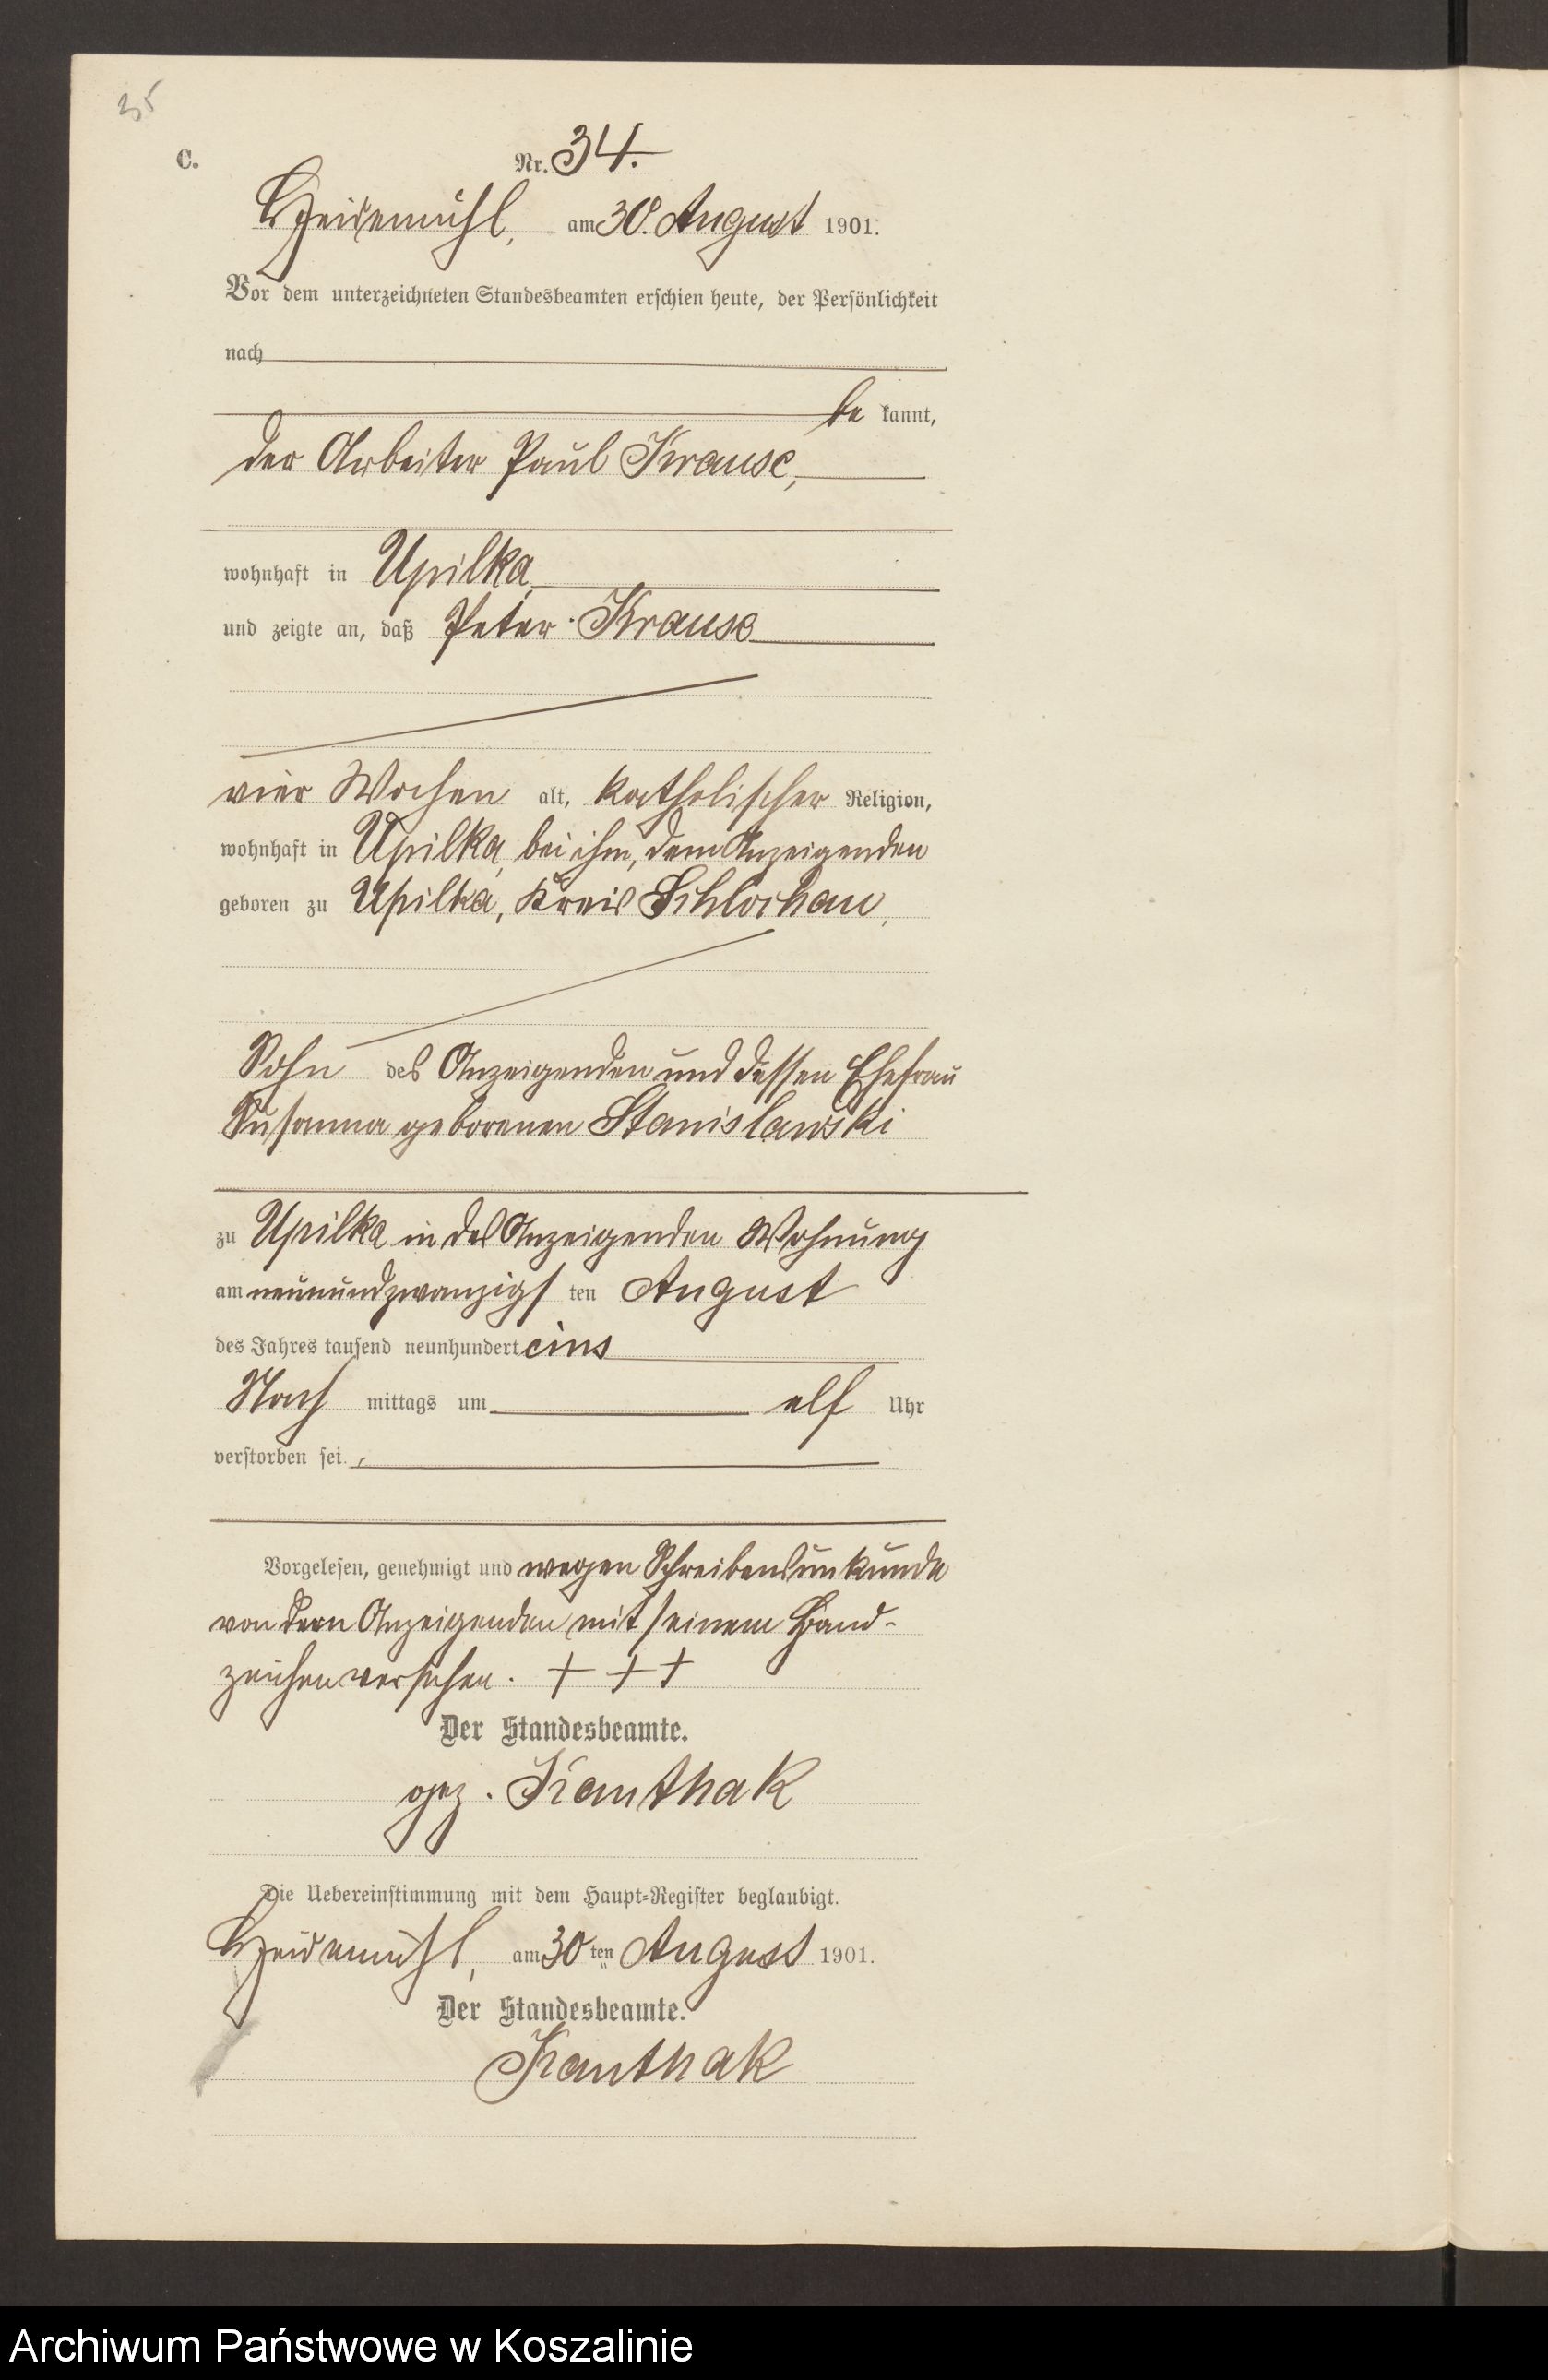 35
C.
Nr. 34.
Heidemühl, am 30. August 1901.
Vor dem unterzeichneten Standesbeamten erschien heute, der Persönlichkeit
nach
be kannt,
der Arbeiter Paul Krause,
wohnhaft in Upilka
und zeigte an, daß Peter Krause
vier Wochen alt, katholischer Religion,
wohnhaft in Upilka, bei ihm, dem Anzeigenden
geboren zu Upilka, Kreis Schlochau,
Sohn des Anzeigenden und dessen Ehefrau
Susanna geborenen Stanislawski
zu Upilka in des Anzeigenden Wohnung
am neunundzwanzigs ten August
des Jahres tausend neunhundert eins
Nach mittags um elf Uhr
verstorben sei.
Vorgelesen, genehmigt und wegen Schreibensunkunde
von dem Anzeigenden mit seinem Hand-
zeichen versehen. + + +
Der Standesbeamte.
gez. Kanthak
Die Uebereinstimmung mit dem Haupt-Register beglaubigt.
Heidemühl, am 30ten August 1901.
Der Standesbeamte.
Kanthak
Archiwum Państwowe w Koszalinie